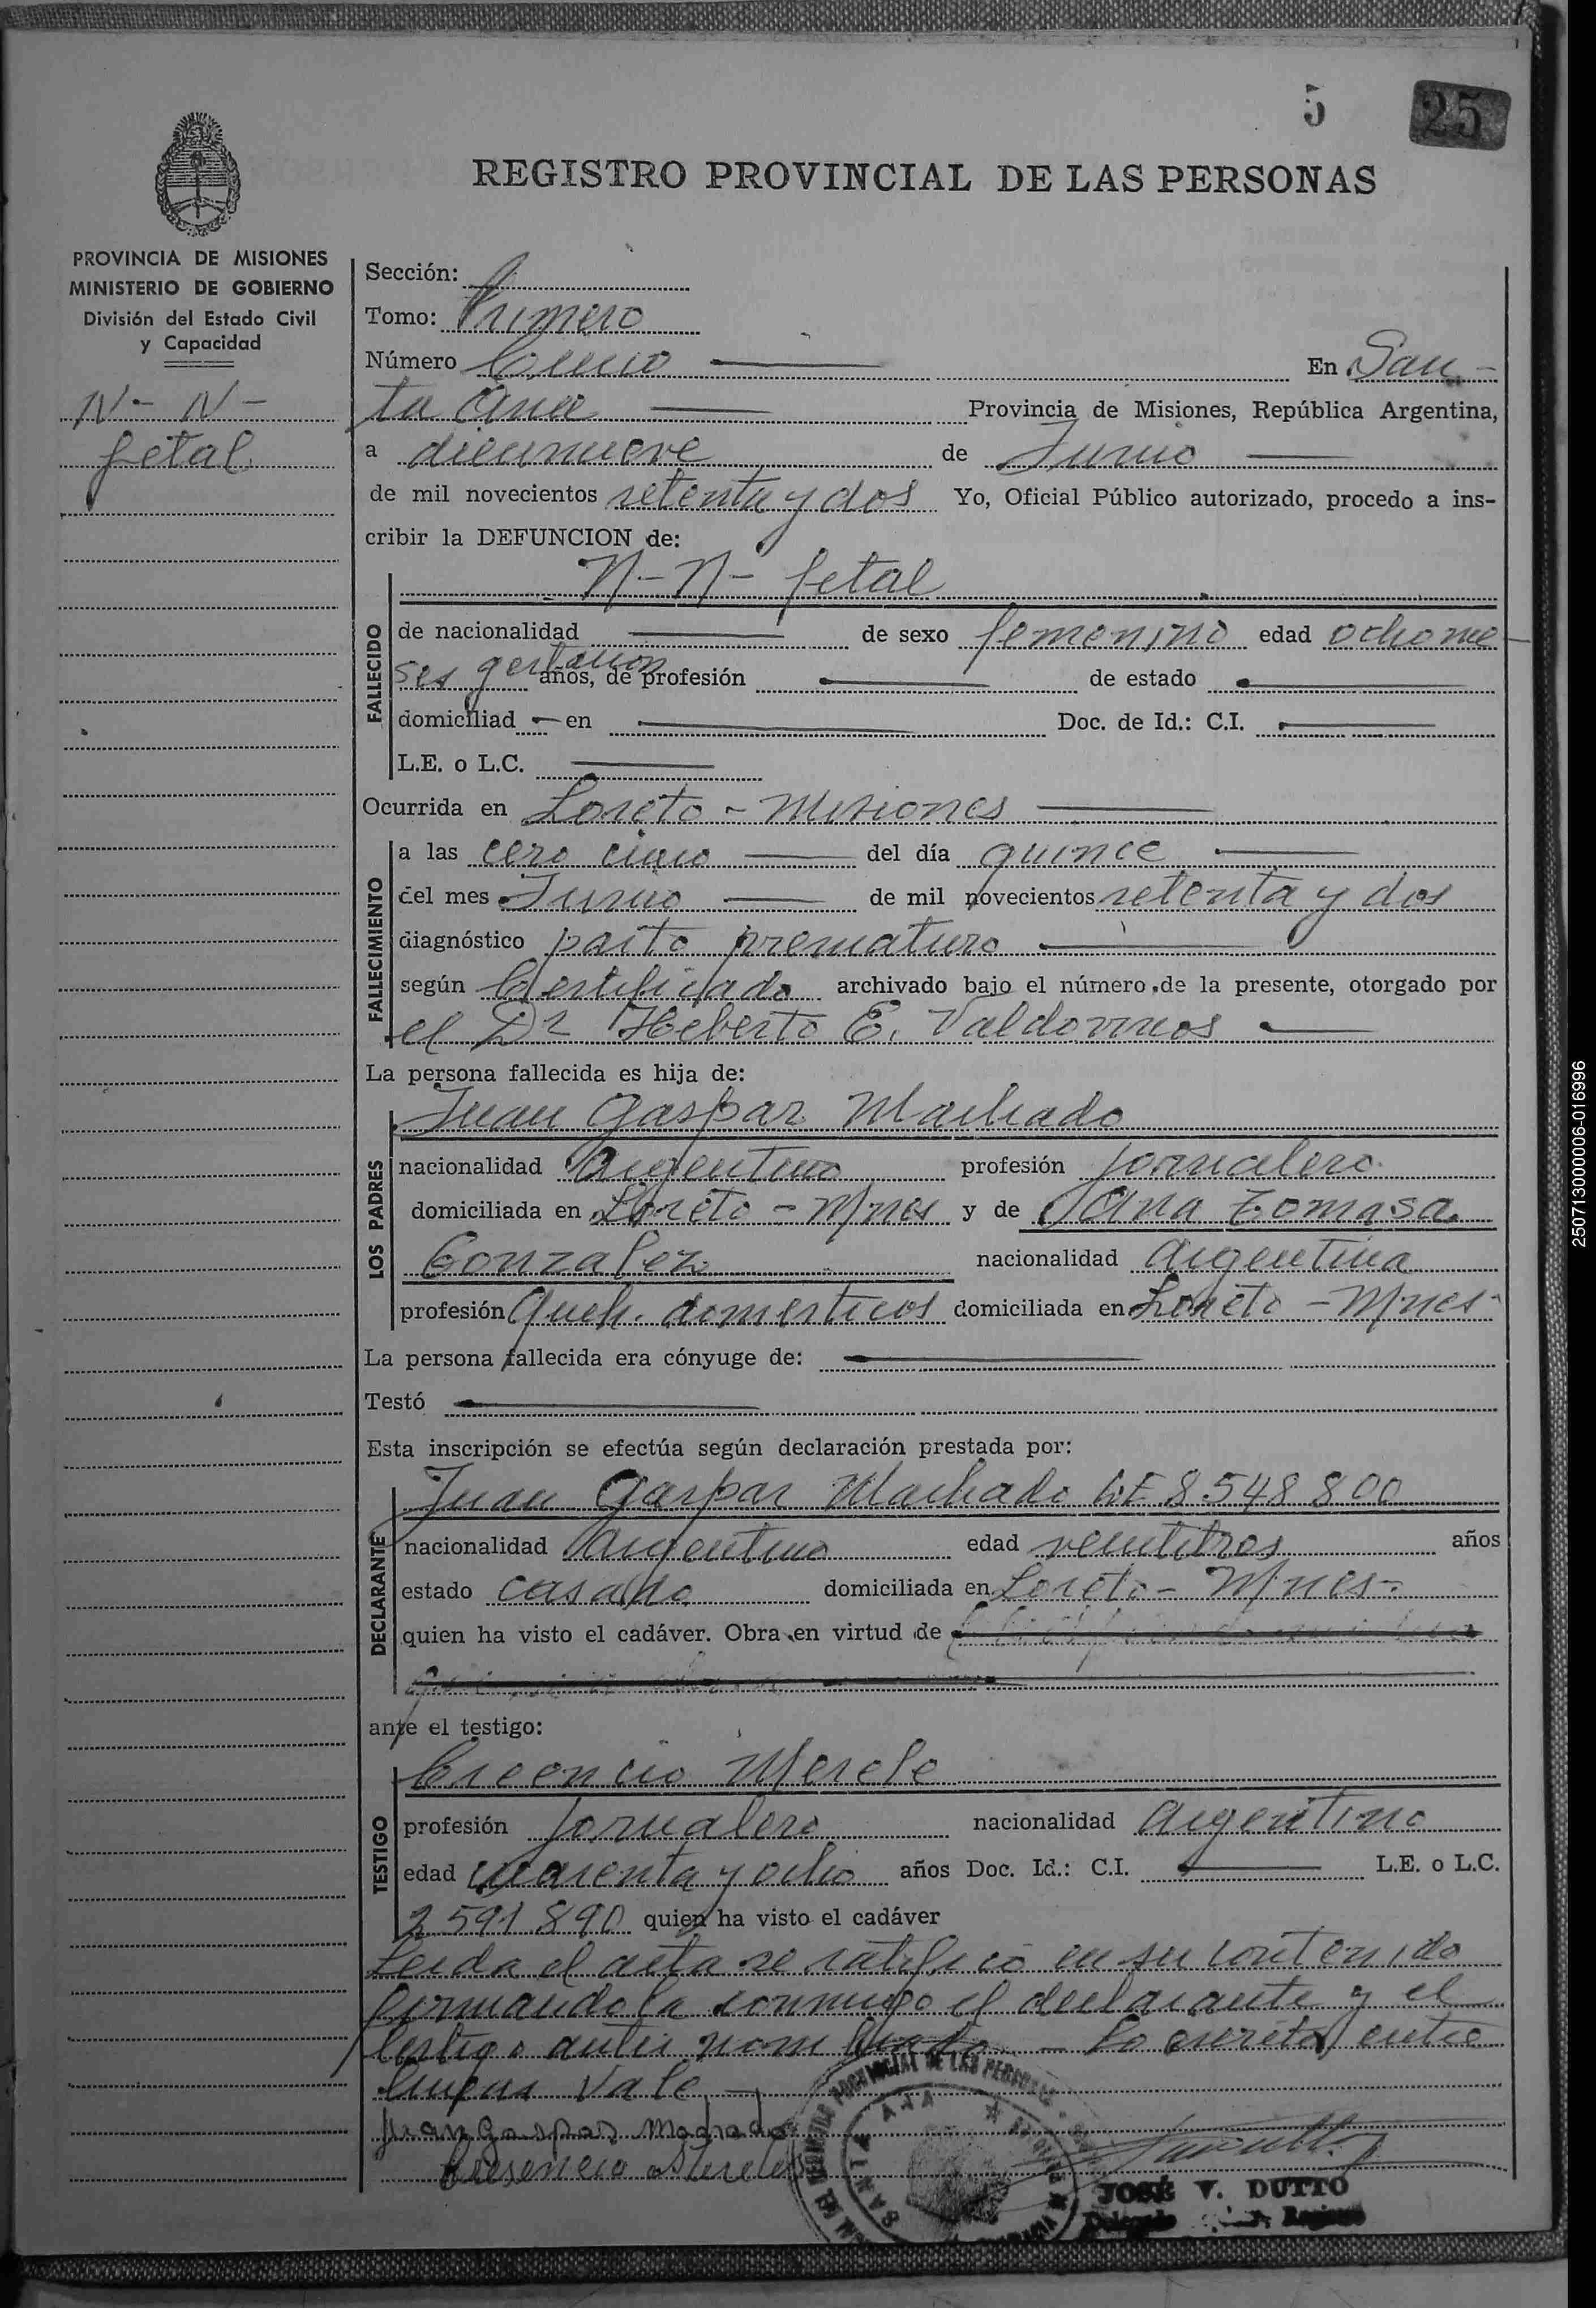 5 25
REGISTRO PROVINCIAL DE LAS PERSONAS
PROVINCIA DE MISIONES
MINISTERIO DE GOBIERNO
División del Estado Civil
y Capacidad
N- N-
fetal
Sección:
Tomo: Primero
Número Cinco En San-
ta Ana Provincia de Misiones, República Argentina,
a diecinueve de Junio
de mil novecientos setenta y dos Yo, Oficial Público autorizado, procedo a ins-
cribir la DEFUNCION de:
N-N- fetal
FALLECIDO
de nacionalidad de sexo femenino edad ocho me-
ses gestacion años, de profesión de estado
domiciliad en Doc. de Id.: C.I.
L.E. o L.C.
Ocurrida en Loreto - Misiones
FALLECIMIENTO
a las cero cinco del día quince
del mes Junio de mil novecientos setenta y dos
diagnóstico parto prematuro
según Certificado archivado bajo el número de la presente, otorgado por
el Dr Heberto E. Valdovinos
La persona fallecida es hija de:
LOS PADRES
Juan Gaspar Machado
nacionalidad Argentino profesión jornalero
domiciliada en Loreto - Mnes y de Ana Tomasa
Gonzalez nacionalidad Argentina
profesión Queh. domesticos domiciliada en Loreto - Mnes-
La persona fallecida era cónyuge de:
Testó
Esta inscripción se efectúa según declaración prestada por:
DECLARANTE
Juan Gaspar Machado L.E 8.548 800
nacionalidad Argentino edad veintitres años
estado casado domiciliada en Loreto - Mnes-
quien ha visto el cadáver. Obra en virtud de
ante el testigo:
TESTIGO
Creencio Merele
profesión jornalero nacionalidad Argentino
edad cuarenta y ocho años Doc. Id.: C.I. L.E. o L.C.
2591890 quien ha visto el cadáver
Leida el acta se ratificó en su contenido
firmandola conmigo el declarante y el
testigo antes nombrado - Lo escrito entre
lineas Vale
Juan Gaspar Machado
SANTA ANA
JOSÉ V. DUTTO
250713000006-016996